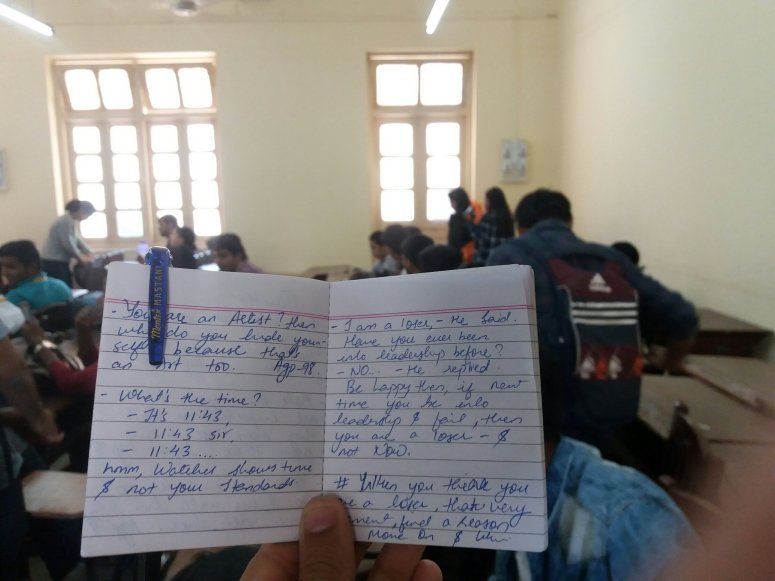 - You are an Artist? then
why do you hide your-
self, because that's
an Art too. Agp-98.
- What's the time?
- It's 11:43,
- 11:43 sir,
- 11:43 ....
hmm, Watches shows time
& not your Standards.
Montex MASTANI
- I am a loser, - He Said.
Have you ever been
into leadership before?
- NO... - He replied.
Be happy then, if next
time you be into
leadership & fail, then
you are a loser - &
not Now.
# When you think you
re a loser, that very
ment, find a reason
Move on &
adidas